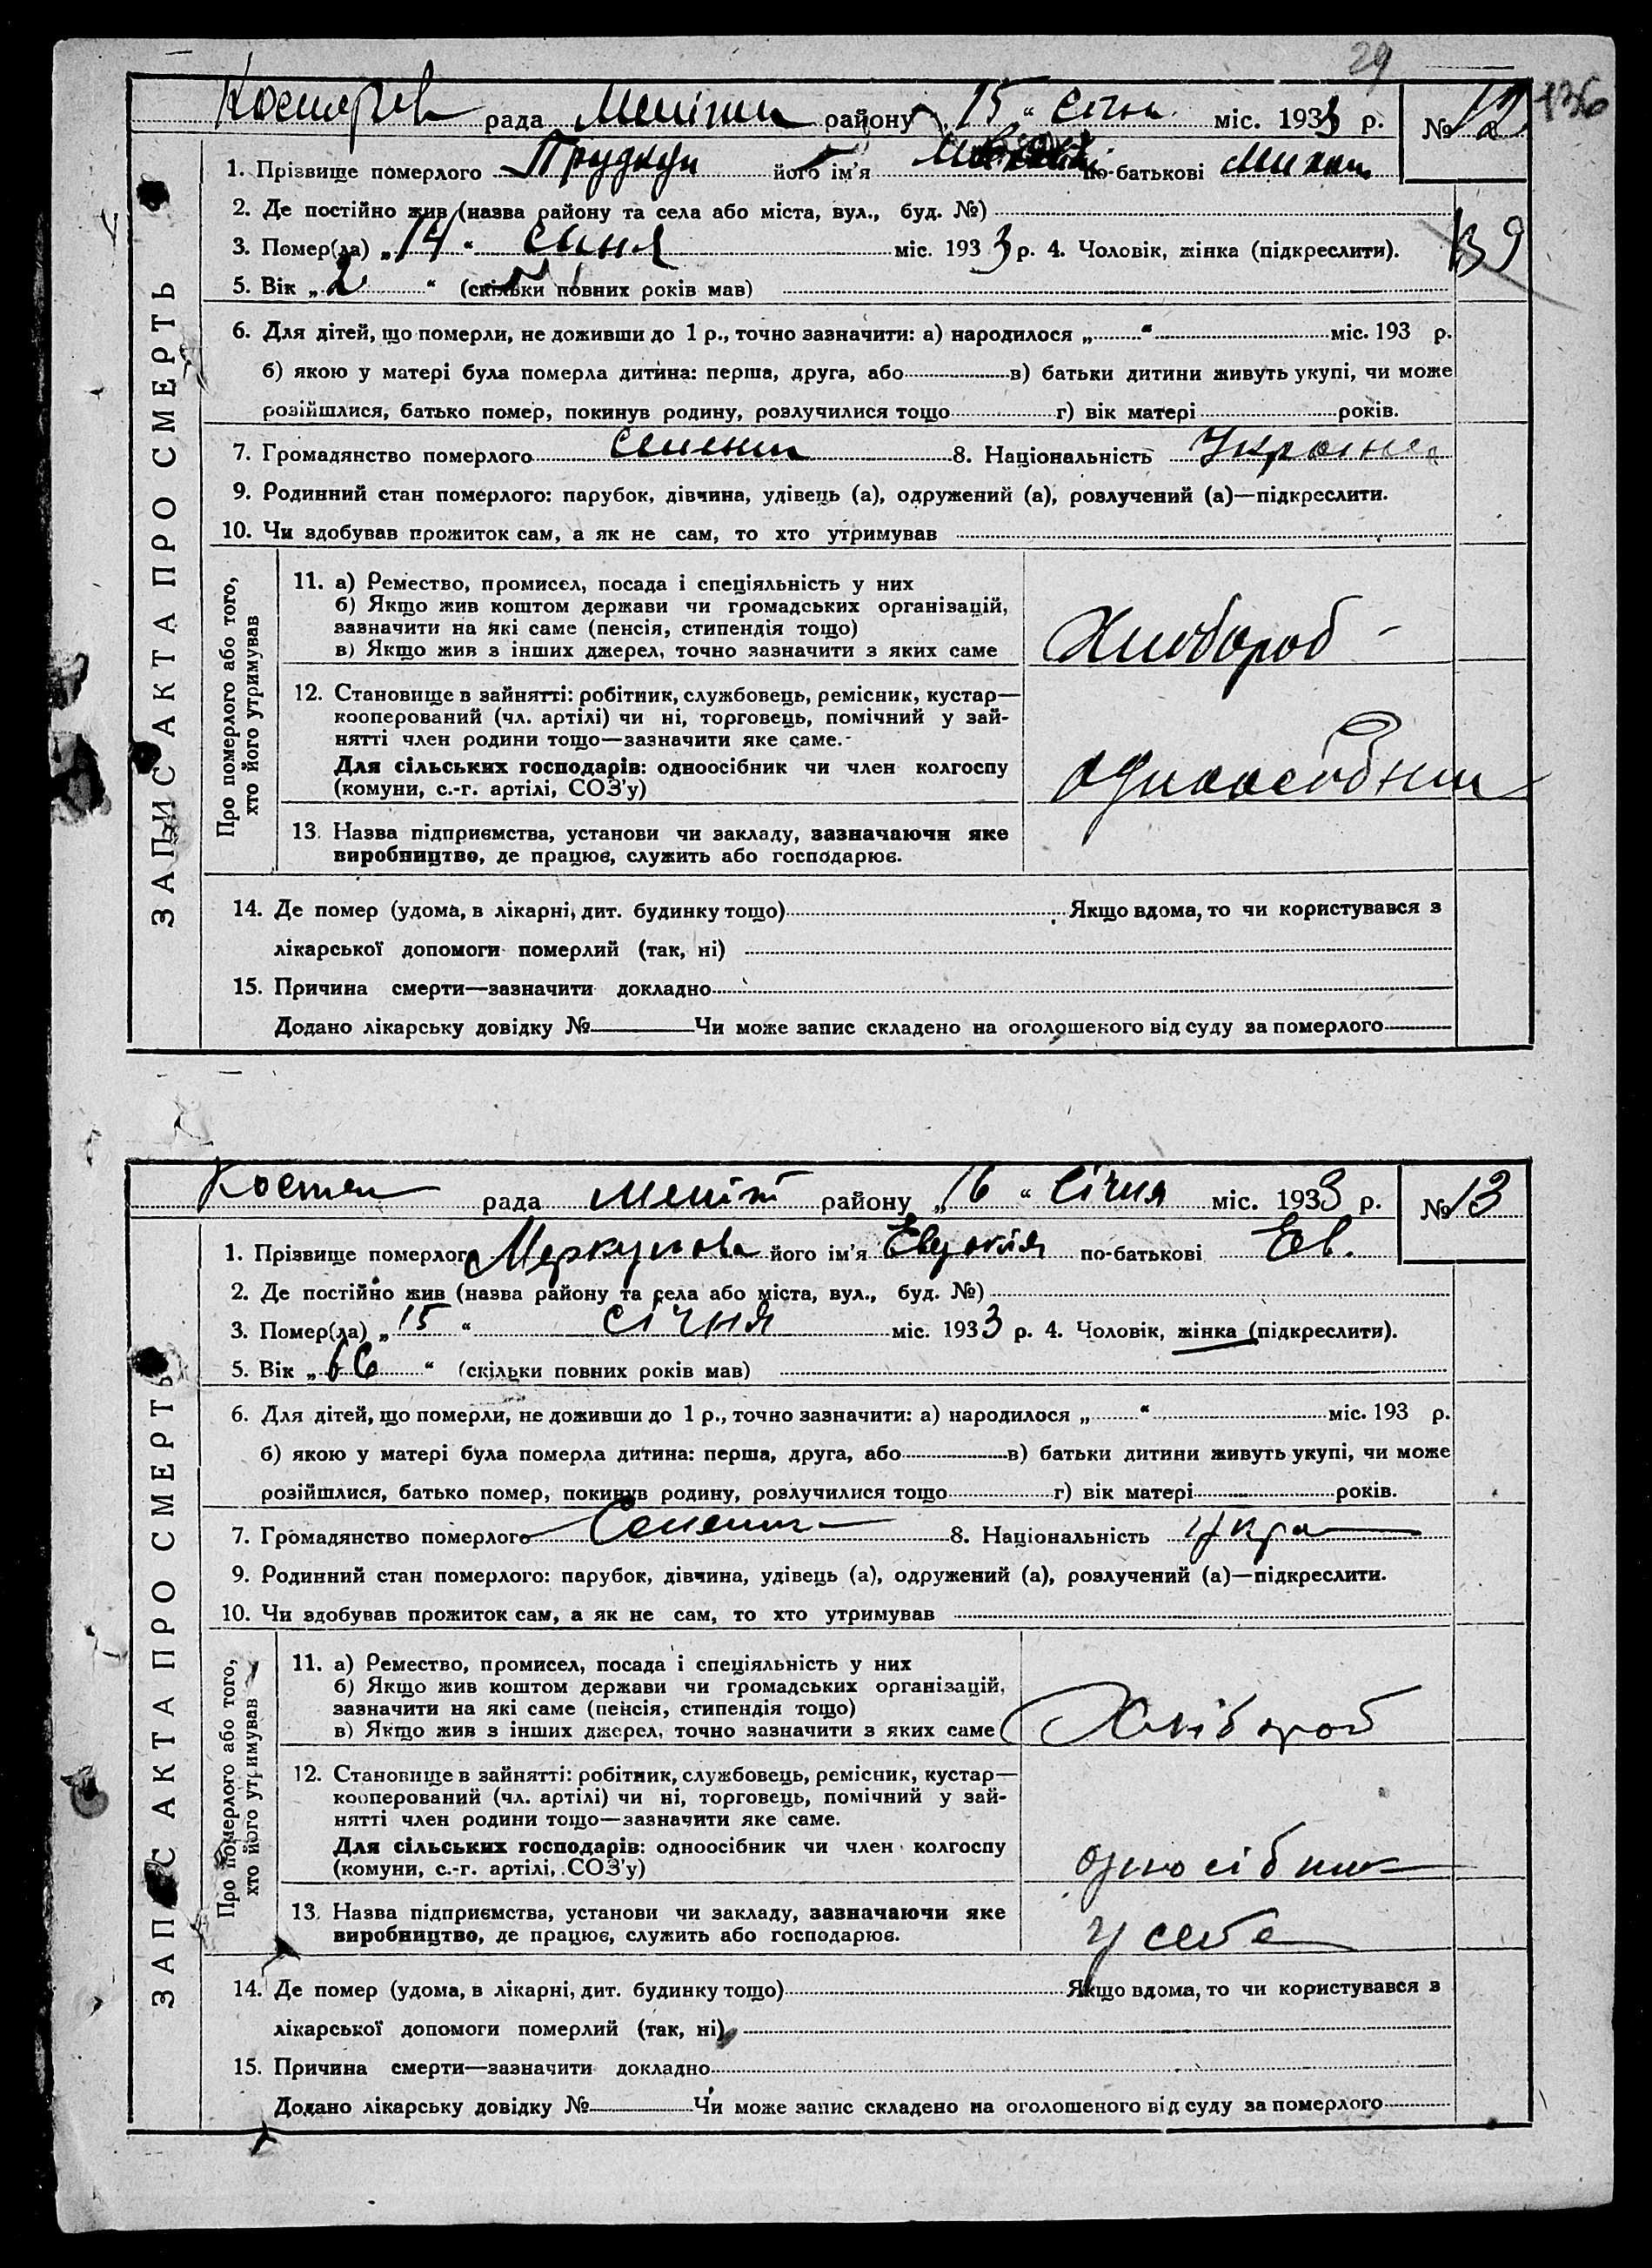 29
136
рада Менськ району „15“ січн міс. 1933 р. № 12
1. Прізвище померлого Прудкун його ім'я по-батькові Михай
2. Де постійно жив (назва району та села або міста, вул., буд. №)
139
3. Помер(ла) „14“ січня міс. 1933 р. 4. Чоловік, жінка (підкреслити).
5. Вік „2“ (скільки повних років мав)
6. Для дітей, що померли, не доживши до 1 р., точно зазначити: а) народилося „ “ міс. 193 р.
б) якою у матері була померла дитина: перша, друга, або в) батьки дитини живуть укупі, чи може
розійшлися, батько помер, покинув родину, розлучилися тощо г) вік матері років.
7. Громадянство померлого 8. Національність Україне
9. Родинний стан померлого: парубок, дівчина, удівець (а), одружений (а), розлучений (а)—підкреслити.
10. Чи здобував прожиток сам, а як не сам, то хто утримував
ЗАПИС АКТА ПРО СМЕРТЬ
Про померлого або того,
хто його утримував
11. а) Ремество, промисел, посада і спеціяльність у них
б) Якщо жив коштом держави чи громадських організацій,
зазначити на які саме (пенсія, стипендія тощо)
в) Якщо жив з інших джерел, точно зазначити з яких саме
Хлібороб
12. Становище в зайнятті: робітник, службовець, ремісник, кустар—
кооперований (чл. артілі) чи ні, торговець, помічний у зай-
нятті член родини тощо—зазначити яке саме.
Для сільських господарів: одноосібник чи член колгоспу
(комуни, с.-г. артілі, СОЗ'у)
одноосібник
13. Назва підприємства, установи чи закладу, зазначаючи яке
виробництво, де працює, служить або господарює.
14. Де помер (удома, в лікарні, дит. будинку тощо) Якщо вдома, то чи користувався з
лікарської допомоги померлий (так, ні)
15. Причина смерти—зазначити докладно
Додано лікарську довідку № Чи може запис складено на оголошеного від суду за померлого
рада Менськ району „16“ Січня міс. 1933 р. № 13
1. Прізвище померлого Меркулова його ім'я Евдокія по-батькові Ев.
2. Де постійно жив (назва району та села або міста, вул., буд. №)
3. Помер(ла) „15“ січня міс. 1933 р. 4. Чоловік, жінка (підкреслити).
5. Вік „66“ (скільки повних років мав)
6. Для дітей, що померли, не доживши до 1 р., точно зазначити: а) народилося „ “ міс. 193 р.
б) якою у матері була померла дитина: перша, друга, або в) батьки дитини живуть укупі, чи може
розійшлися, батько помер, покинув родину, розлучилися тощо г) вік матері років.
7. Громадянство померлого 8. Національність Укра
9. Родинний стан померлого: парубок, дівчина, удівець (а), одружений (а), розлучений (а)—підкреслити.
10. Чи здобував прожиток сам, а як не сам, то хто утримував
ЗАПИС АКТА ПРО СМЕРТЬ
Про померлого або того,
хто його утримував
11. а) Ремество, промисел, посада і спеціяльність у них
б) Якщо жив коштом держави чи громадських організацій,
зазначити на які саме (пенсія, стипендія тощо)
в) Якщо жив з інших джерел, точно зазначити з яких саме
Хлібороб
12. Становище в зайнятті: робітник, службовець, ремісник, кустар—
кооперований (чл. артілі) чи ні, торговець, помічний у зай-
нятті член родини тощо—зазначити яке саме.
Для сільських господарів: одноосібник чи член колгоспу
(комуни, с.-г. артілі, СОЗ'у)
односібник
13. Назва підприємства, установи чи закладу, зазначаючи яке
виробництво, де працює, служить або господарює.
у себе
14. Де помер (удома, в лікарні, дит. будинку тощо) Якщо вдома, то чи користувався з
лікарської допомоги померлий (так, ні)
15. Причина смерти—зазначити докладно
Додано лікарську довідку № Чи може запис складено на оголошеного від суду за померлого